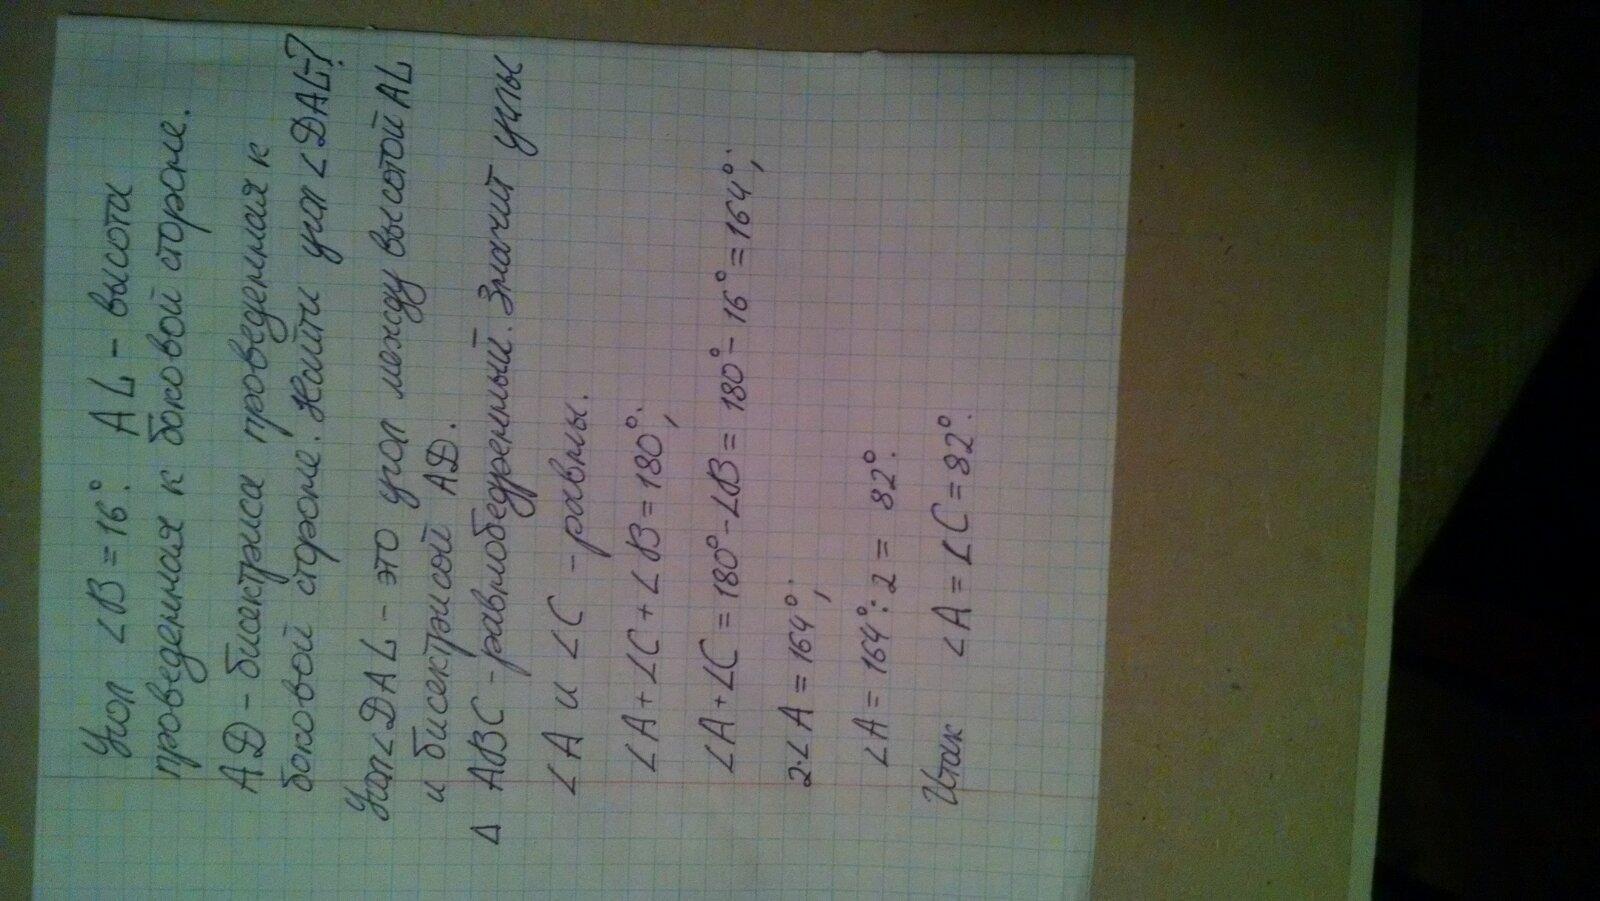 Угол ∠B = 16°. AL - высота
проведенная к боковой стороне.
AD - бисектриса проведенная к
боковой стороне. Найти угол ∠DAL-?
Угол ∠DAL - это угол между высотой AL
и бисектрисой AD.
Δ ABC - равнобедренный. Значит углы
∠A и ∠C - равны.
∠A + ∠C + ∠B = 180°;
∠A + ∠C = 180° - ∠B = 180° - 16° = 164°;
2·∠A = 164°;
∠A = 164° : 2 = 82°.
Итак ∠A = ∠C = 82°.